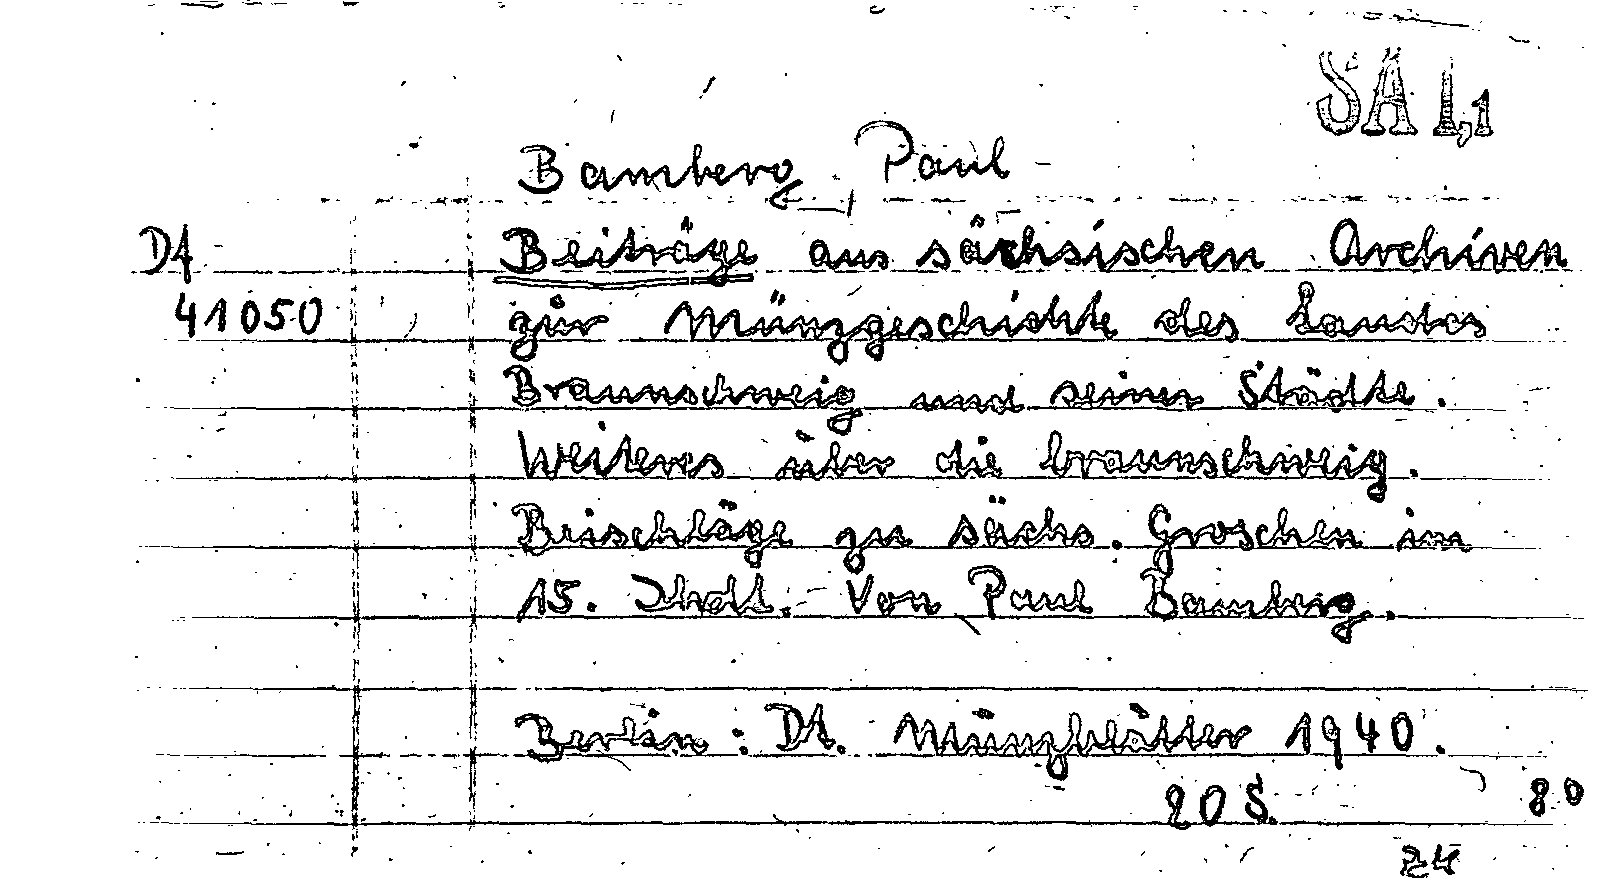 SÄ 1,1
Bamberg, Paul
Dt Beiträge aus sächsischen Archiven
41050 zur Münzgeschichte des Landes
Braunschweig und seiner Städte.
Weiteres über die braunschweig.
Beischläge zu sächs. Groschen im
15. Jhdt. Von Paul Bamberg.
Berlin: Dt. Münzblätter 1940.
20 S. 80